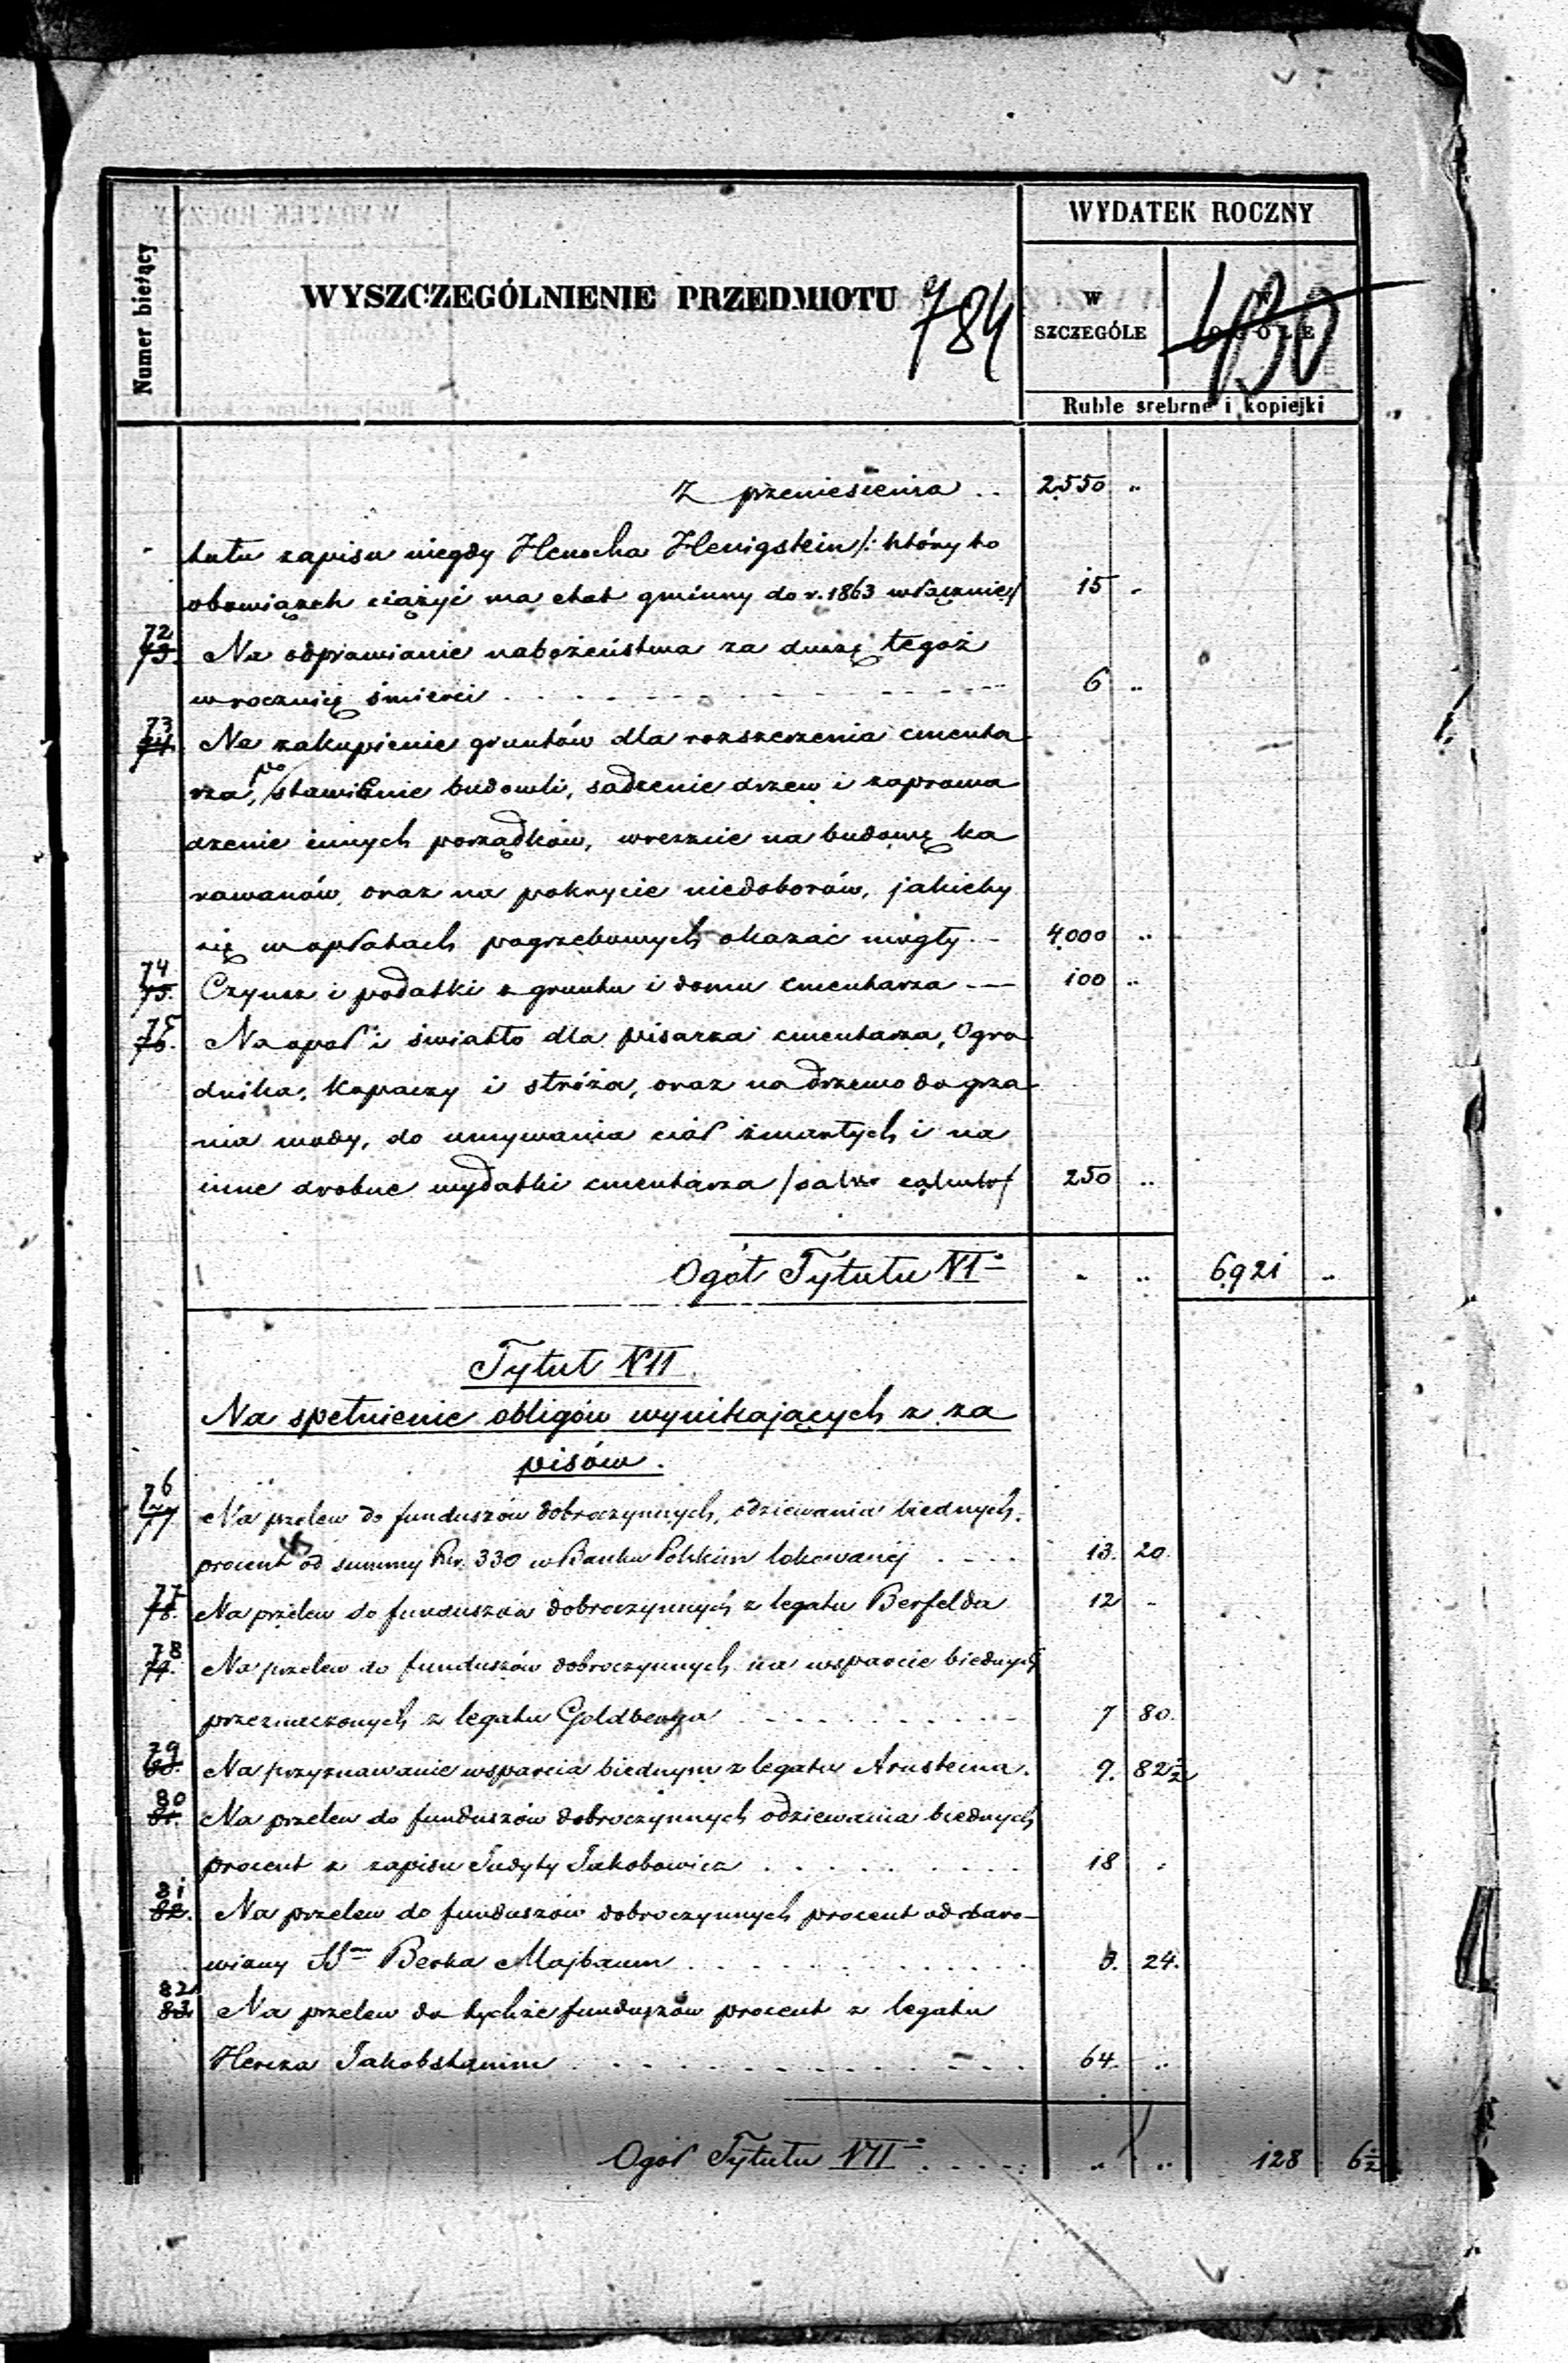 WYDATEK ROCZNY
Numer bieżący
WYSZCZEGÓLNIENIE PRZEDMIOTU
784
W SZCZEGÓLE
W OGÓLE
430
Ruble srebrne i kopiejki
Z przeniesienia .. 2550 ..
tułu zapisu niegdy Henocha Henigstein /: który to
obowiązek ciążyć ma etat gminny do r. 1863 włącznie/ 15 -
72 73. Na odprawianie nabożeństwa za duszę tegoż
w rocznicę śmierci 6 ..
73 74. Na zakupienie gruntów dla rozszerzenia cmenta
rza, postawienie budowli, sadzenie drzew i zaprowa
dzenie innych porządków, wreszcie na budowę ka
rawanów, oraz na pokrycie niedoborów, jakieby
się w opłatach pogrzebowych okazać mogły 4000 ..
74 75. Czynsz i podatki z gruntu i domu cmentarza 100 ..
75 76. Na opał i światło dla pisarza cmentarza, Ogro
dnika, Kopaczy i stróża, oraz na drzewo do grza
nia wody, do umywania ciał zmarłych i na
inne drobne wydatki cmentarza /salvo calculo/ 250 ..
Ogół Tytułu VI 6921 ..
Tytuł VII
Na spełnienie obligów wynikających z za
pisów.
76 77. Na przelew do funduszów dobroczynnych, odziewania biednych,
procent od summy Rsr. 330 w Banku Polskim lokowanej 13. 20.
77 78. Na przelew do funduszów dobroczynnych z legatu Berfelda 12 -
78 79. Na przelew do funduszów dobroczynnych na wsparcie biednych
przeznaczonych z legatu Goldberga 7 80.
79 80. Na przyznawanie wsparcia biednym z legatu Arnsteina. 9. 82½
80 81. Na przelew do funduszów dobroczynnych odziewania biednych
procent z zapisu Judyty Jakobowicz 18
81 82. Na przelew do funduszów dobroczynnych procent od daro-
wizny Berka Majbaum 3. 24.
82 83. Na przelew do tychże funduszów procent z legatu
Hercza Jakobstamm 64. ..
Ogół Tytułu VII 128 6½